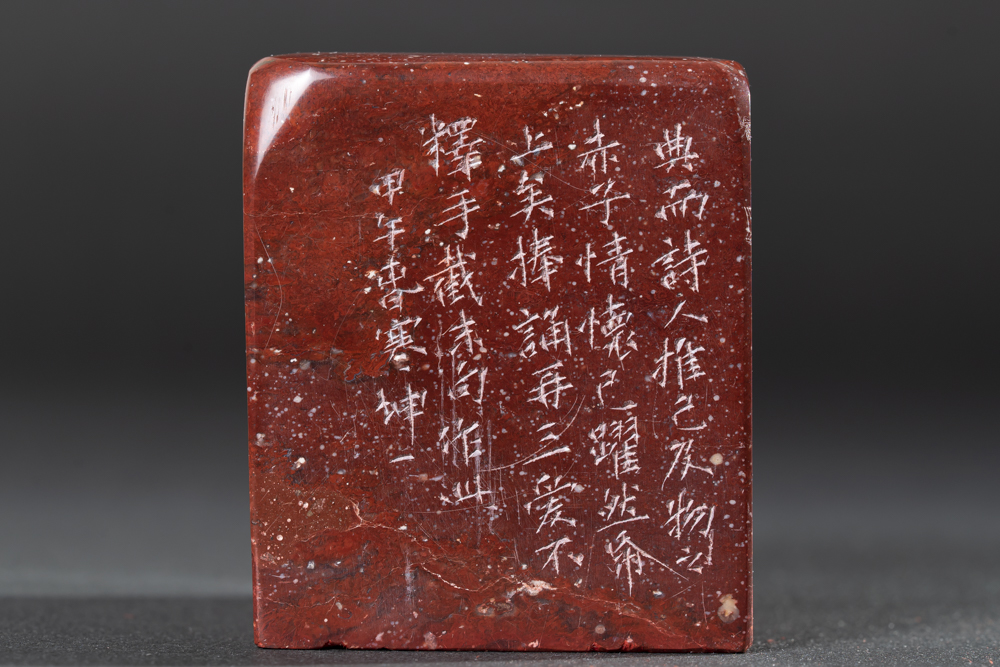 典而詩人推己及物之
赤子情懷已躍然帋
上矣捧誦再三愛不
釋手截末句作此
甲午春寒坤一